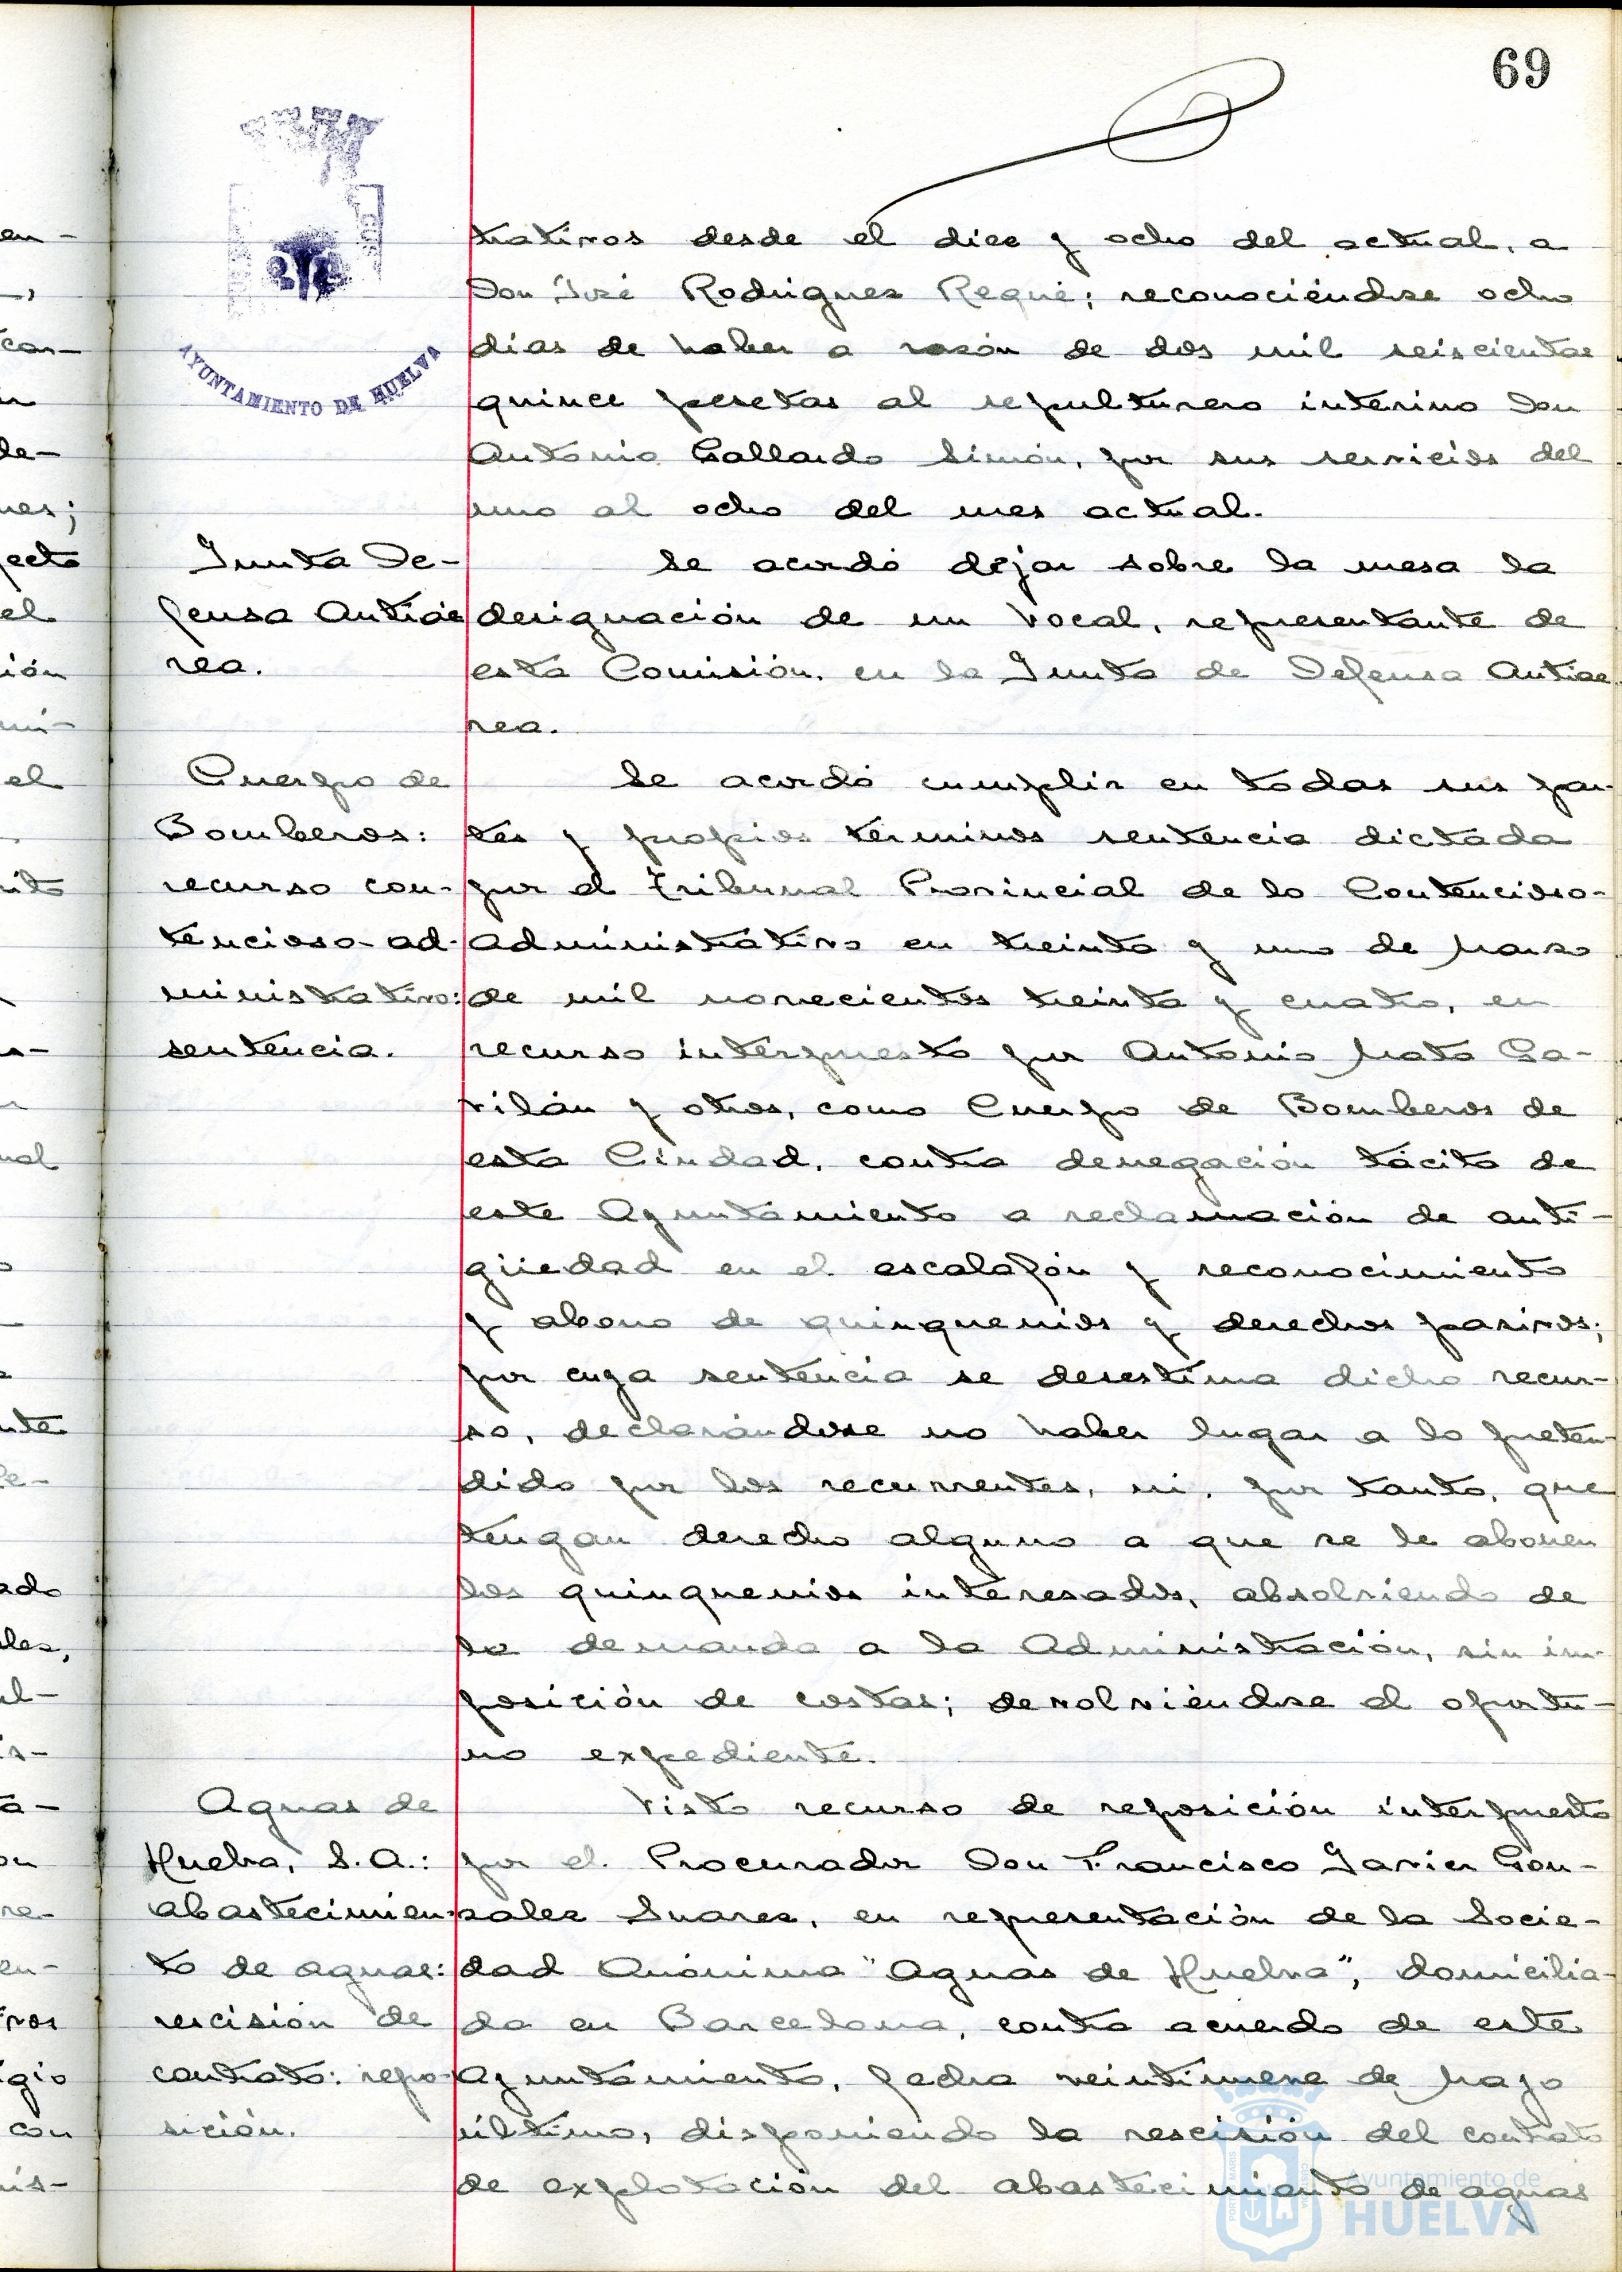 69
AYUNTAMIENTO DE HUELVA
trativos desde el diez y ocho del actual, a
Don José Rodriguez Requé; reconociéndose ocho
dias de haber a razón de dos mil seiscientas
quince pesetas al sepulturero interino Don
Antonio Gallardo Simón, por sus servicios del
uno al ocho del mes actual.
Junta De-
fensa Antiaé
rea.
Se acordó dejar sobre la mesa la
designación de un Vocal, representante de
esta Comisión, en la Junta de Defensa Antiae
rea.
Cuerpo de
Bomberos:
recurso con-
tencioso-ad-
ministrativo:
sentencia.
Se acordó cumplir en todas sus par-
tes y propios terminos sentencia dictada
por el Tribunal Provincial de lo Contencioso-
Administrativo en treinta y uno de Marzo
de mil novecientos treinta y cuatro, en
recurso interpuesto por Antonio Mato Ga-
vilán y otros, como Cuerpo de Bomberos de
esta Ciudad, contra denegación tácita de
este Ayuntamiento a reclamación de anti-
güedad en el escalafón y reconocimiento
y abono de quinquenios y derechos pasivos;
por cuya sentencia se desestima dicho recur-
so, declarándose no haber lugar a lo preten-
dido por los recurrentes, ni, por tanto, que
tengan derecho alguno a que se le abonen
los quinquenios interesados, absolviendo de
la demanda a la Administración, sin im-
posición de costas; devolviéndose el oportu-
no expediente.
Aguas de
Huelva, S.A.:
abastecimien-
to de aguas:
rescisión de
contrato: repo-
sición.
Visto recurso de reposición interpuesto
por el Procurador Don Francisco Javier Gon-
zalez Suarez, en representación de la Socie-
dad Anónima "Aguas de Huelva", domicilia-
da en Barcelona, contra acuerdo de este
Ayuntamiento, fecha veintinueve de Mayo
último, disponiendo la rescisión del contrato
de explotación del abastecimiento de aguas
Ayuntamiento de
HUELVA